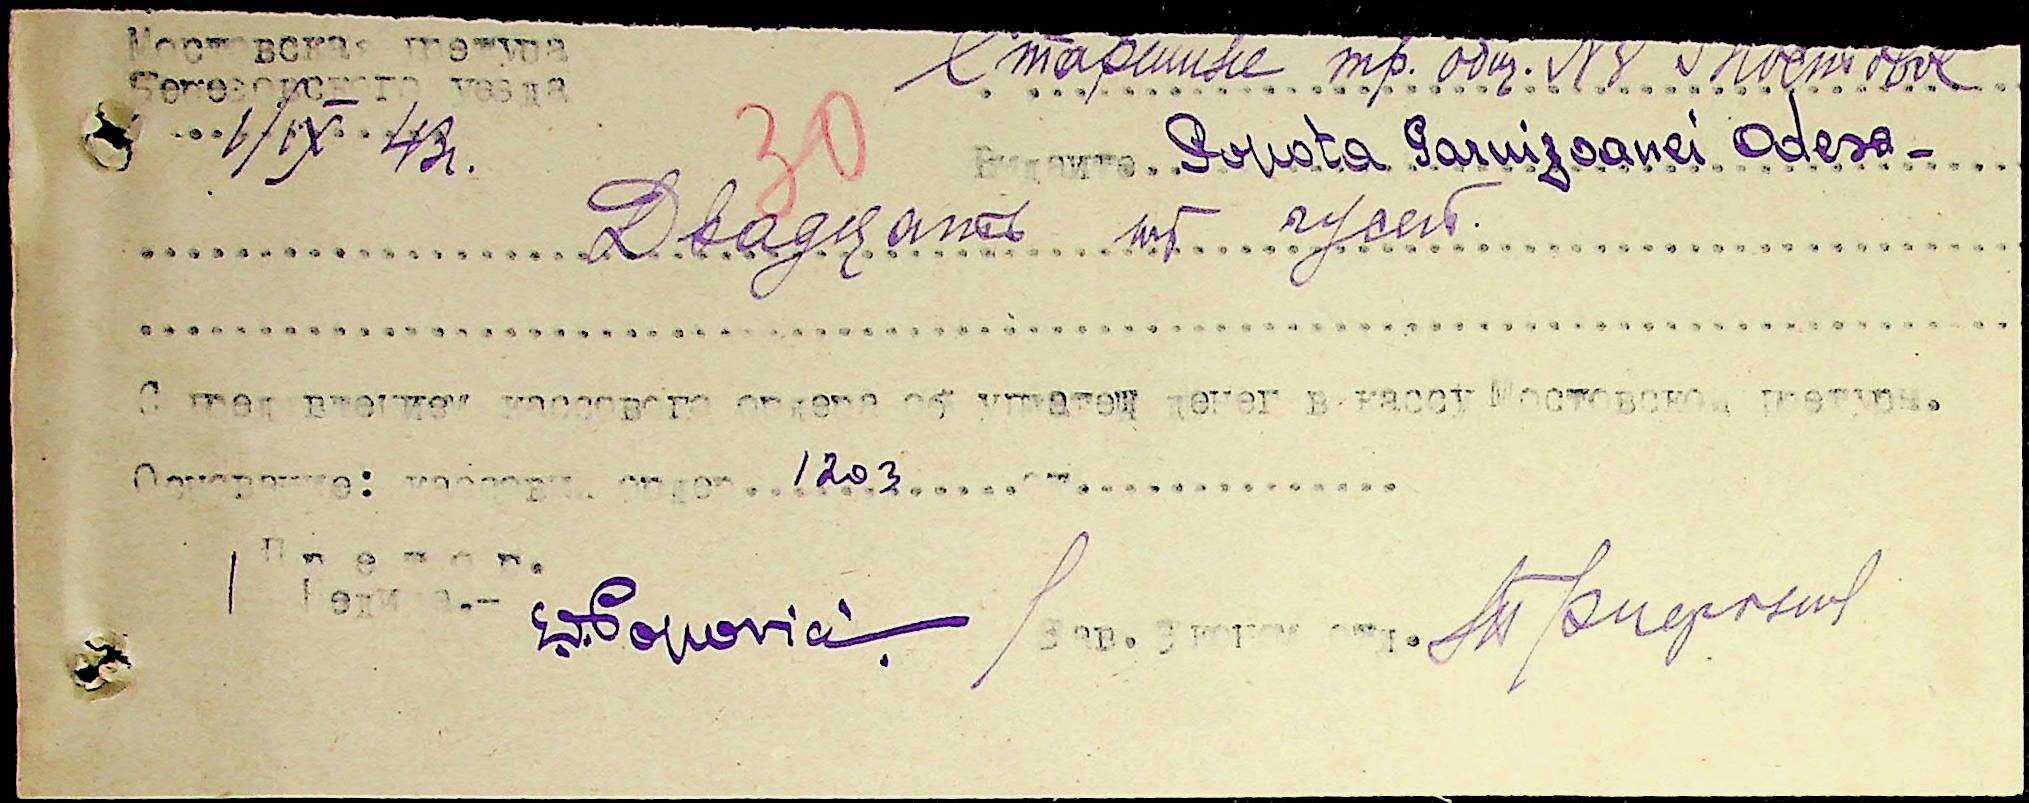 Мостовская претура
Березовского уезда
1/IX 43г.
Старшине тр. общ. №8 Мостовое
30
Выдайте Popota Garnizoanei Odesa-
Двадцать шт гусей.
С пред'явлением кассового ордера об уплате денег в кассу Мостовской претуры.
Основание: кассовый ордер 1203 от
Претор.
W. Popovici
Зав. Экономотд.